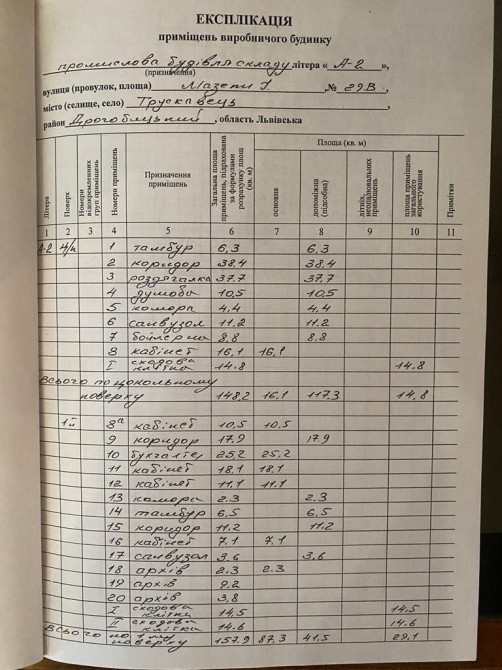 ЕКСПЛІКАЦІЯ
приміщень виробничого будинку
промислова будівля складу літера « А-2 »,
(призначення)
вулиця (провулок, площа) Мазепи І. , № 29В ,
місто (селище, село) Трускавець ,
район Дрогобицький , область Львівська
Літера | Поверх | Номери відокремлених груп приміщень | Номери приміщень | Призначення приміщень | Загальна площа приміщень, підрахована за формулами розрахунку площ (кв. м) | Площа (кв. м) | Примітки
основна | допоміжна (підсобна) | літніх, неопалювальних приміщень | площа приміщень загального користування
1 2 3 4 5 6 7 8 9 10 11
А-2 ц/п 1 тамбур 6,3 6.3
2 коридор 38,4 38.4
3 роздягалка 37.7 37.7
4 душова 10,5 10.5
5 комора 4.4 4.4
6 санвузол 11.2 11.2
7 бойлерна 8.8 8.8
8 кабінет 16,1 16,1
І сходова клітка 14.8 14.8
Всього по цокольному
поверху 148,2 16,1 117.3 14,8
1й 8а кабінет 10,5 10,5
9 коридор 17.9 17.9
10 бухгалтер 25,2 25.2
11 кабінет 18,1 18,1
12 кабінет 11.1 11.1
13 комора 2.3 2.3
14 тамбур 6,5 6,5
15 коридор 11.2 11.2
16 кабінет 7.1 7.1
17 санвузол 3,6 3,6
18 архів 2.3 2.3
19 архів 9.2
20 архів 3,8
І сходова клітка 14,5 14.5
ІІ сходова клітка 14.6 14.6
Всього по 1 му поверху 157.9 87.3 41.5 29.1